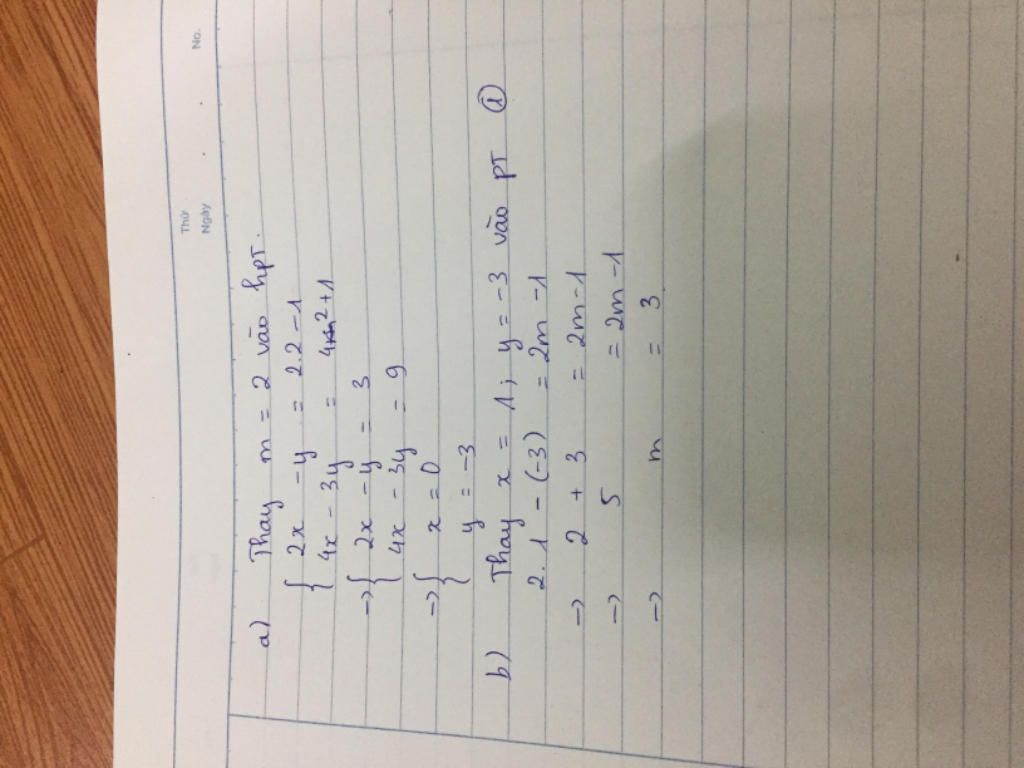 Thứ
Ngày
No.
a) Thay m = 2 vào hpt.
{ 2x - y = 2.2 - 1
4x - 3y = 4.2 + 1
→ { 2x - y = 3
4x - 3y = 9
→ { x = 0
y = -3
b) Thay x = 1; y = -3 vào PT
2.1 - (-3) = 2m - 1
→ 2 + 3 = 2m - 1
→ 5 = 2m - 1
→ m = 3